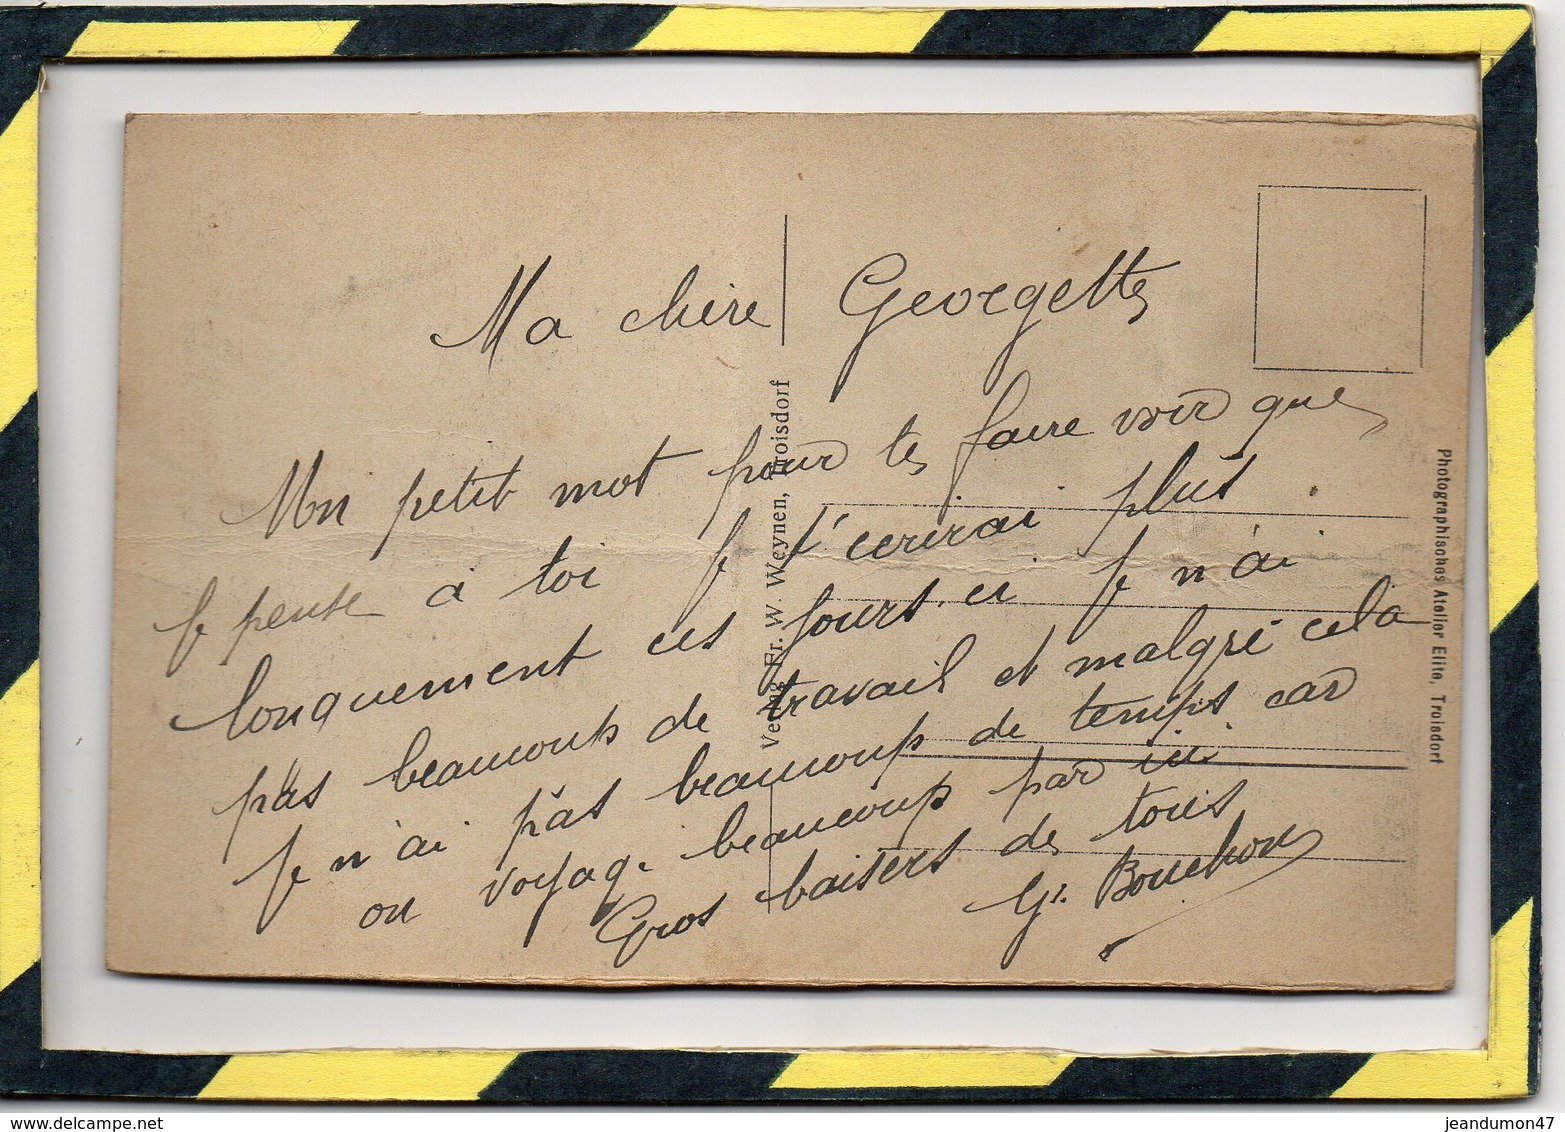 Ma chère Georgette
Un petit mot pour te faire voir que
je pense à toi je t'ecrirai plus
longuement ces jours ci je n'ai
pas beaucoup de travail et malgré cela
je n'ai pas beaucoup de temps car
on voyage beaucoup par ici
Gros baisers de tous
G. Bouchon
Verlag Fr. W. Weynen, Troisdorf
Photographisches Atelier Elite, Troisdorf
delcampe.net
jeandumon47